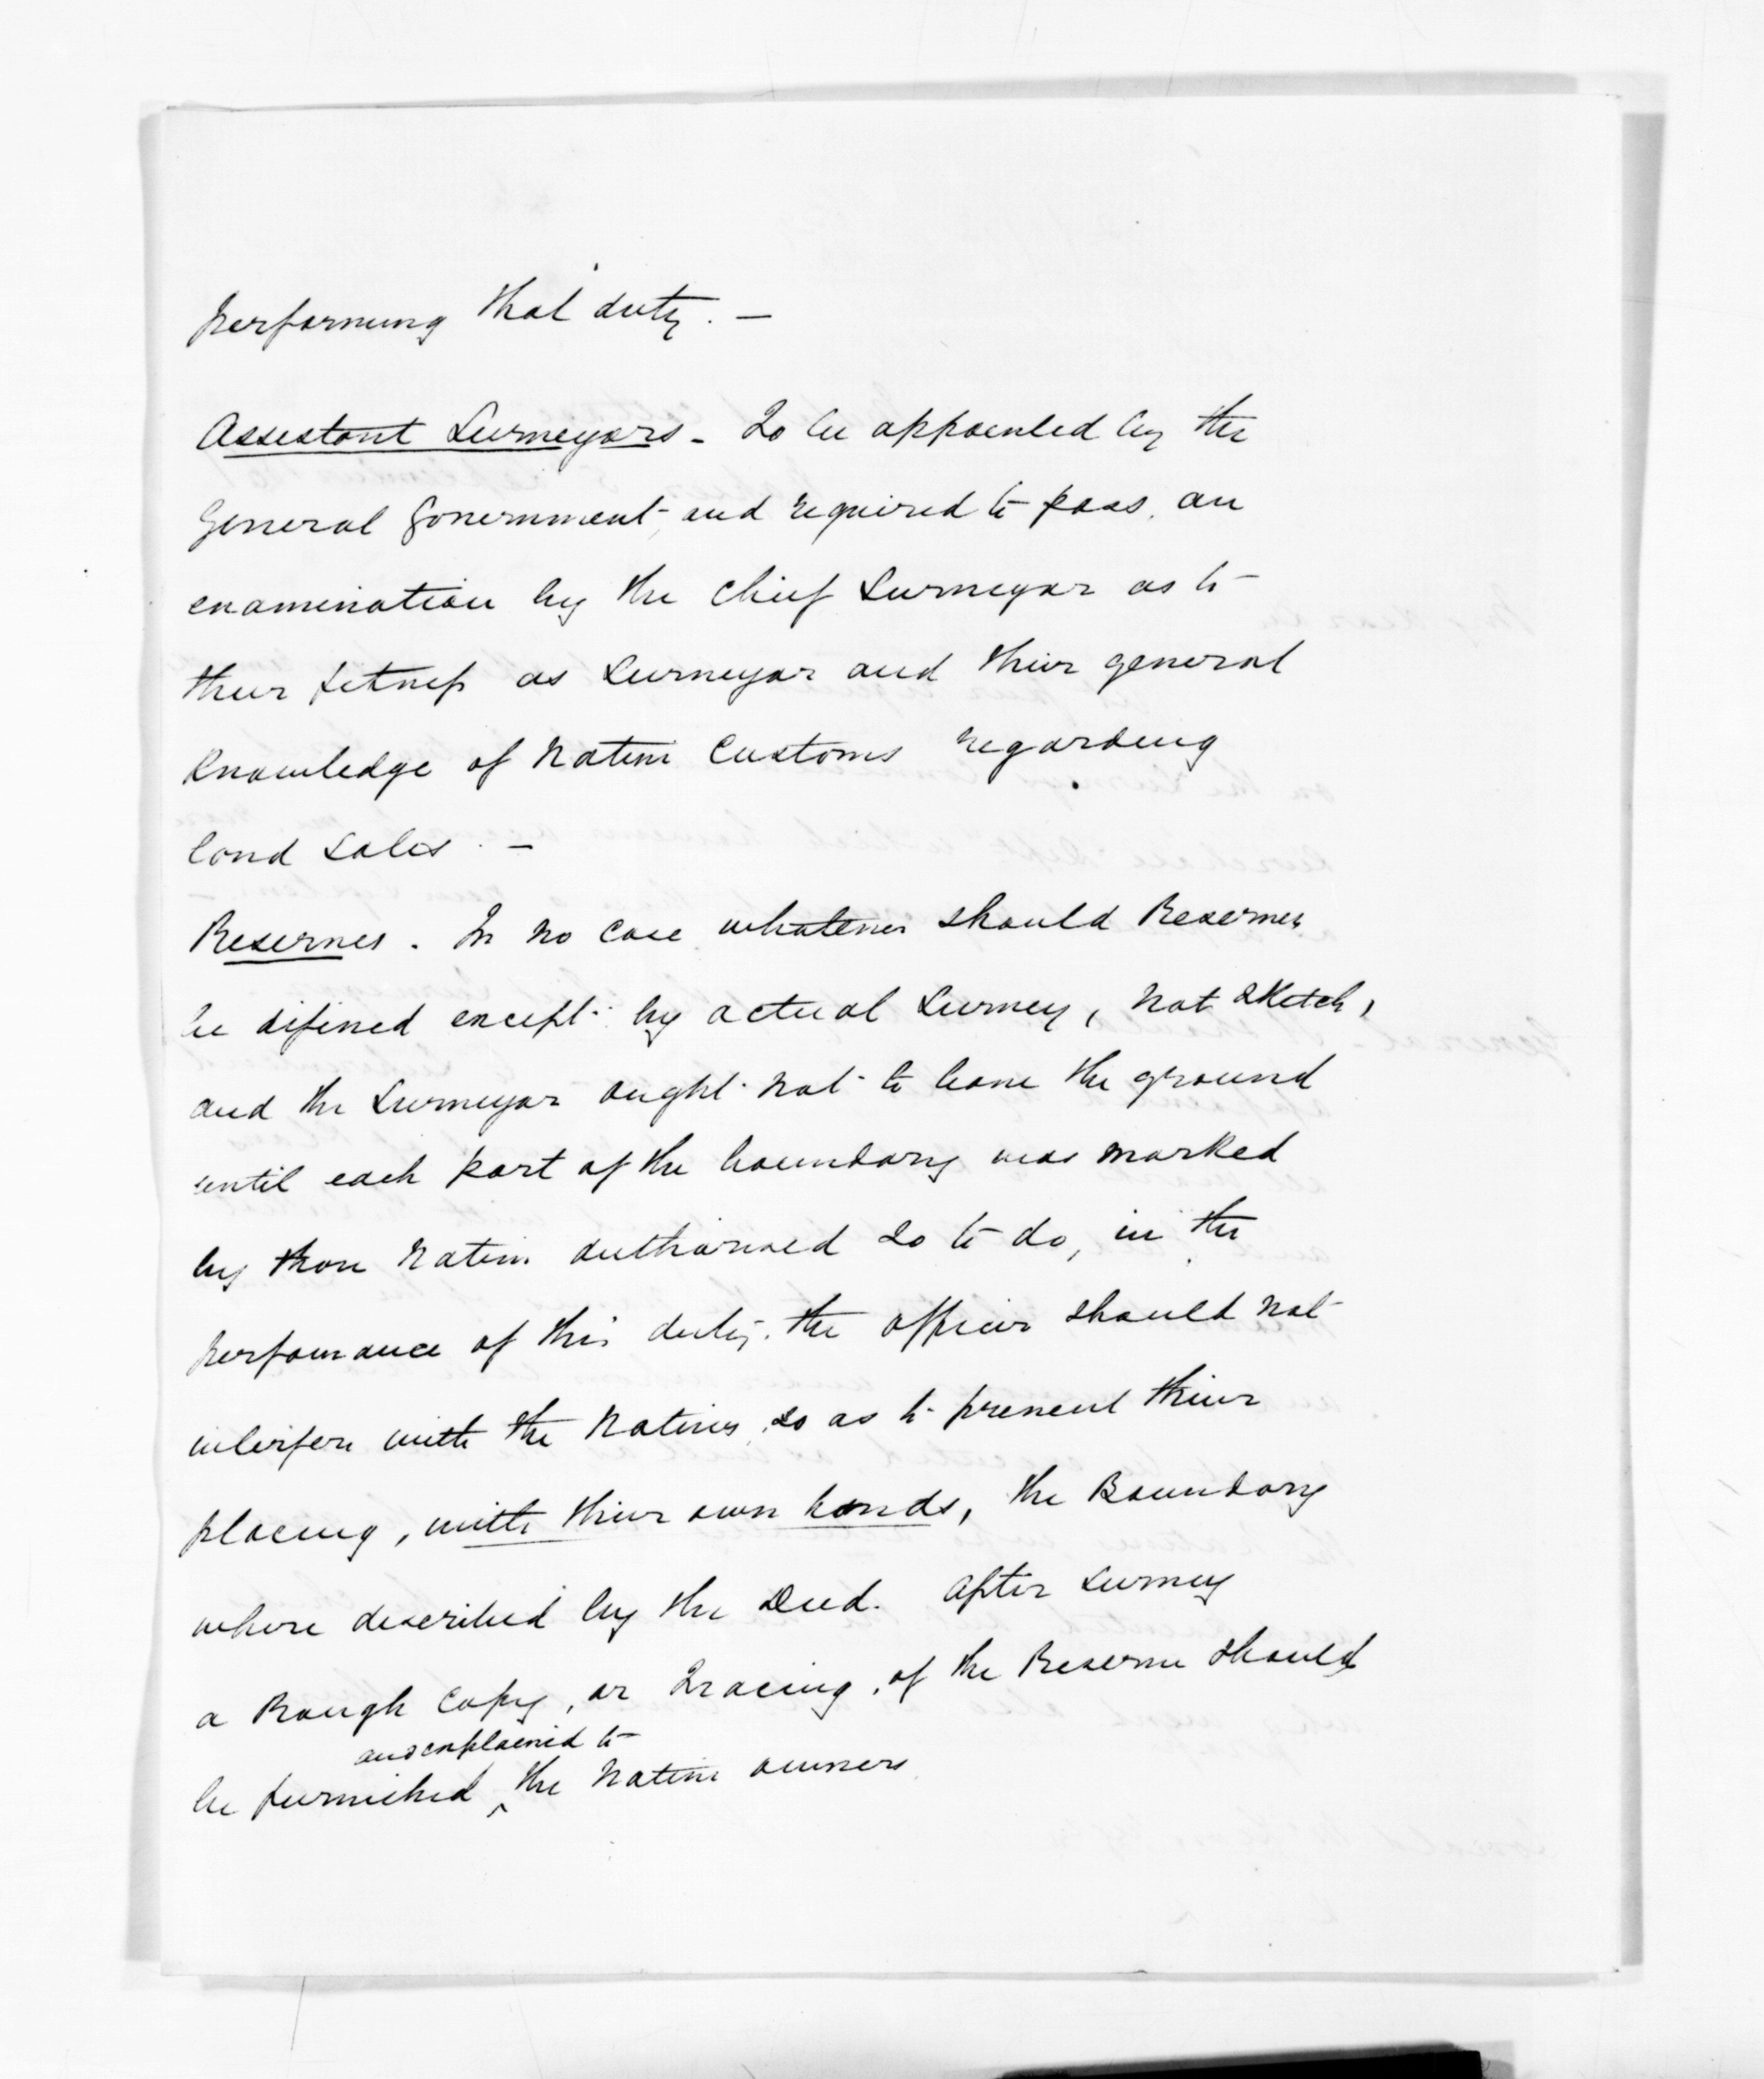 performing that duty. —
Assistant Surveyors - To be appointed by the
General Government, and required to pass an
examination by the Chief Surveyor as to
their fitness as Surveyor and their general
Knowledge of Native Customs regarding
land sales. —
Reserves. In no case whatever should Reserves
be difined except by actual Survey, not sketch,
and the Surveyor ought not to leave the ground
until each part of the boundary was marked
by those Natives authorised so to do, in the
perfomance of this duty. the officer should not
interfere with the Natives so as to prevent their
placing, with their own hands, the Boundary
where described by the Deed. After survey
a Rough Copy, or Tracing, of the Reserve should
and explained to
be furnished ^ the Native owners